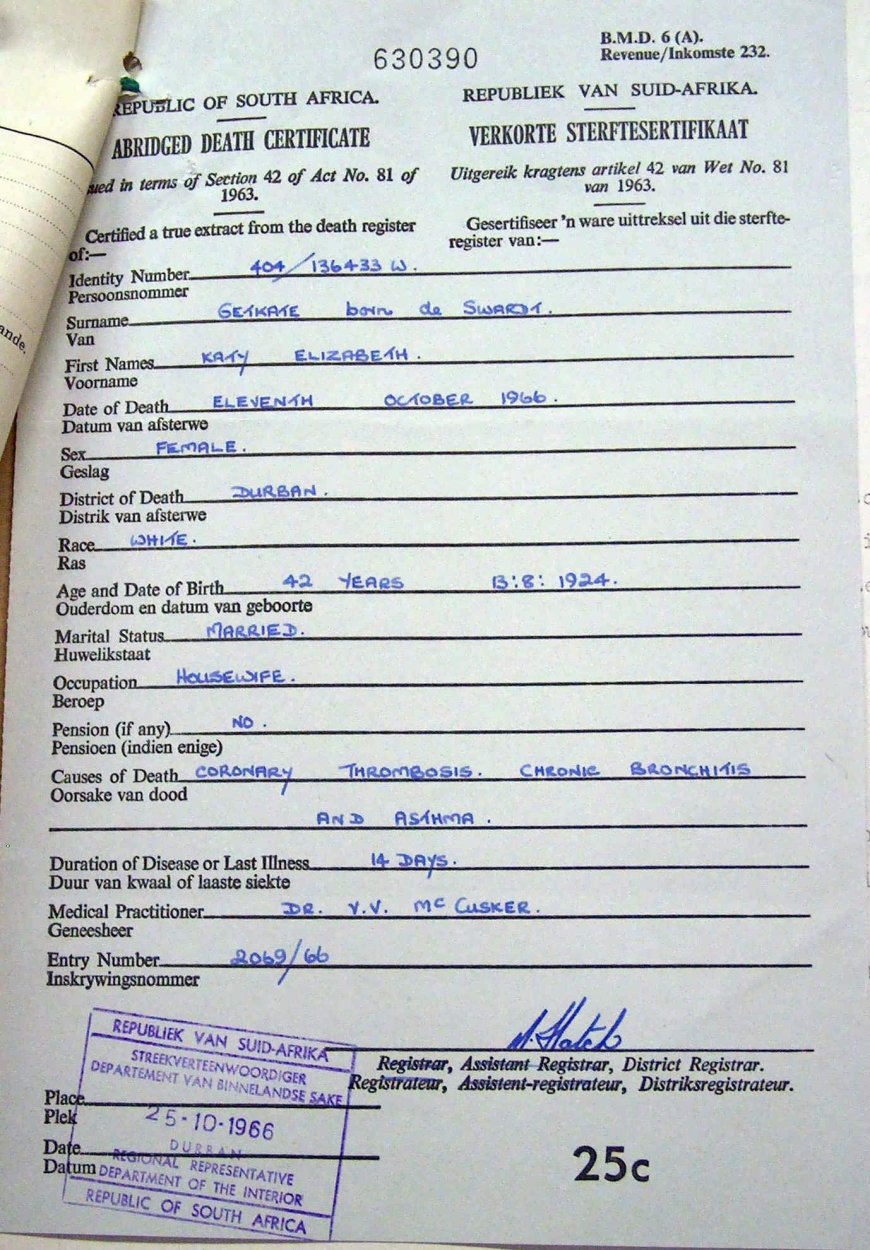 B.M.D. 6 (A).
Revenue/Inkomste 232.
630390
REPUBLIC OF SOUTH AFRICA.
ABRIDGED DEATH CERTIFICATE
in terms of Section 42 of Act No. 81 of
1963.
Certified a true extract from the death register
of:—
REPUBLIEK VAN SUID-AFRIKA.
VERKORTE STERFTESERTIFIKAAT
Uitgereik kragtens artikel 42 van Wet No. 81
van 1963.
Gesertifiseer 'n ware uittreksel uit die sterfte-
register van:—
Identity Number 404/136433 W.
Persoonsnommer
Surname GETKATE born de SWARDT.
Van
First Names KATY ELIZABETH.
Voorname
Date of Death ELEVENTH OCTOBER 1966.
Datum van afsterwe
Sex FEMALE.
Geslag
District of Death DURBAN.
Distrik van afsterwe
Race WHITE.
Ras
Age and Date of Birth 42 YEARS 13:8:1924.
Ouderdom en datum van geboorte
Marital Status MARRIED.
Huwelikstaat
Occupation HOUSEWIFE.
Beroep
Pension (if any) NO.
Pensioen (indien enige)
Causes of Death CORONARY THROMBOSIS. CHRONIC BRONCHITIS
Oorsake van dood
AND ASTHMA.
Duration of Disease or Last Illness 14 DAYS.
Duur van kwaal of laaste siekte
Medical Practitioner DR. V.V. McCUSKER.
Geneesheer
Entry Number 2069/66
Inskrywingsnommer
Registrar, Assistant Registrar, District Registrar.
Registrateur, Assistent-registrateur, Distriksregistrateur.
Place
Plek
Date
Datum
REPUBLIEK VAN SUID-AFRIKA
STREEKVERTEENWOORDIGER
DEPARTEMENT VAN BINNELANDSE SAKE
25-10-1966
DURBAN
REGIONAL REPRESENTATIVE
DEPARTMENT OF THE INTERIOR
REPUBLIC OF SOUTH AFRICA
25c